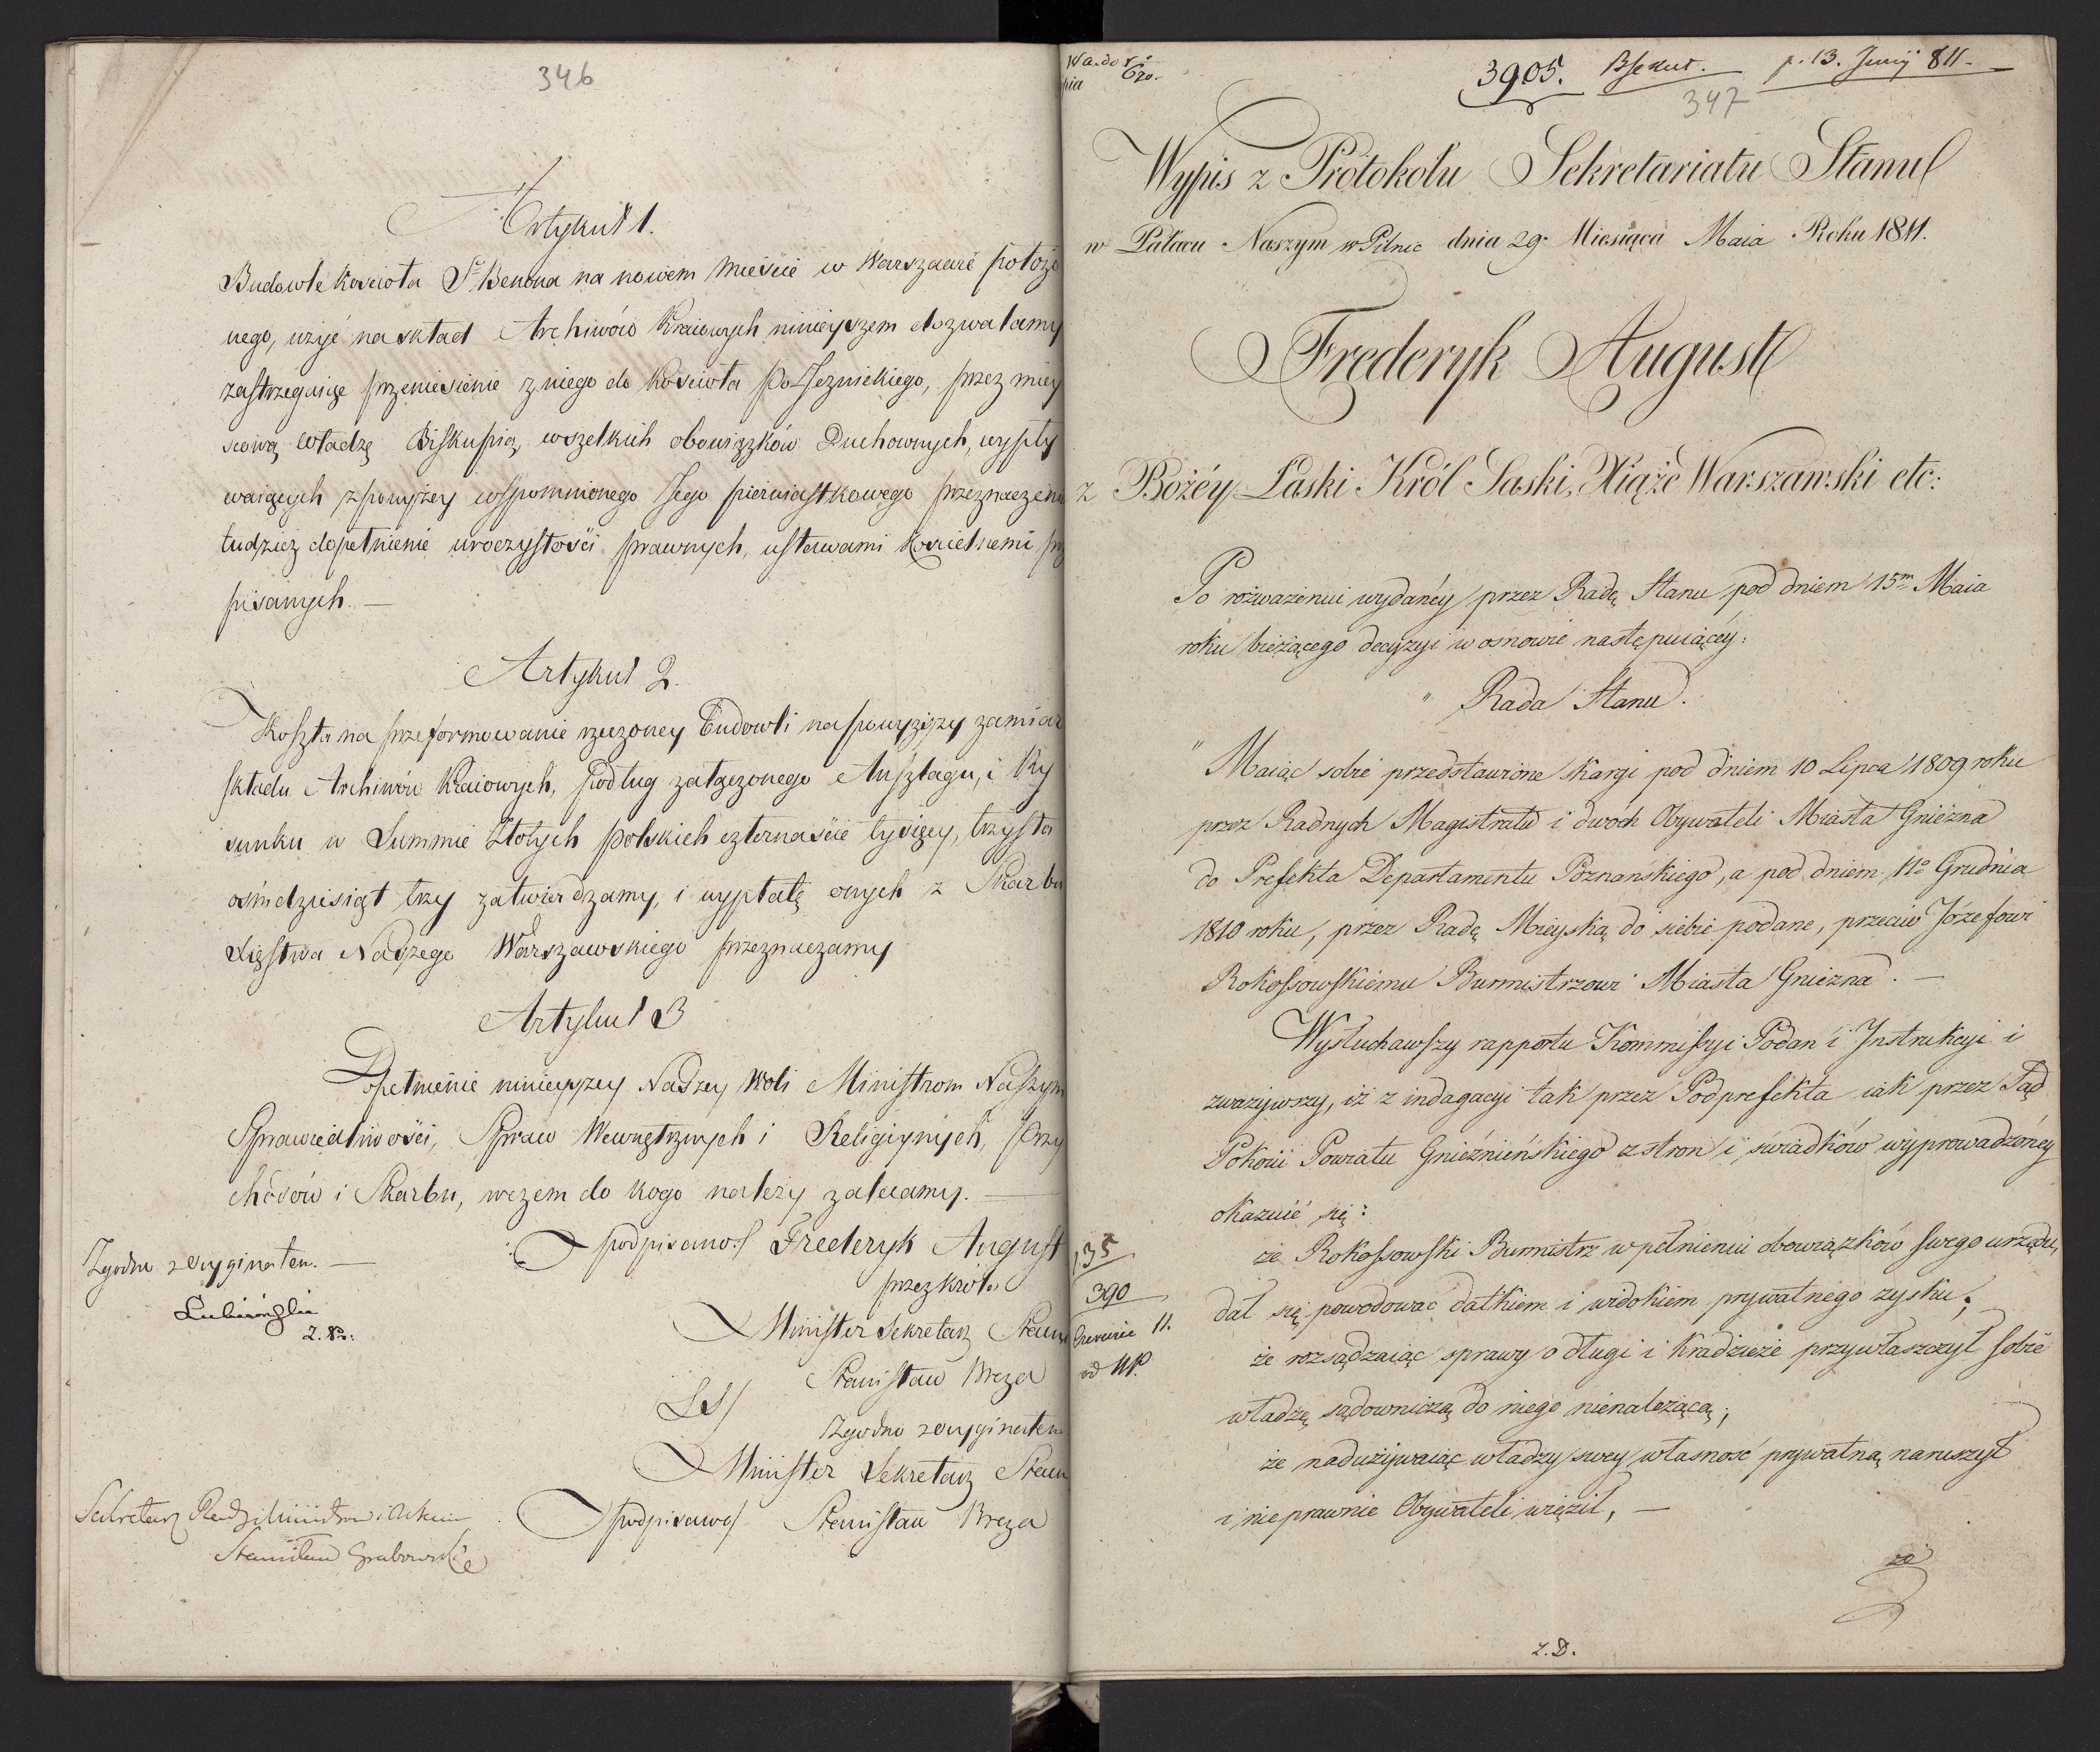 346
Artykuł 1.
Budowlę kościoła Sgo Benona na nowem mieście w Warszawie położo
nego, użyć na skład Archiwów Kraiowych ninieyszem dozwalamy
zastrzegaiąc przeniesienie z niego do kościoła po Jezuickiego, przez miey
scową Władzę Biskupią, wszelkich obowiązków Duchownych, wypły
waiących z powyżey wspomnionego Jego pierwiastkowego przeznaczenia
tudzież dopełnienie uroczystości prawnych, ustawami Kościelnemi prze
pisanych. —
Artykuł 2.
Koszta na przeformowanie rzeczoney Budowli na powyższy zamiar
składu Archiwów Kraiowych, podług załączonego Anszlagu, i Ry
sunku w Summie Złotych polskich czternaście tysięcy, trzysta
ośmdziesiąt trzy zatwierdzamy, i wypłatę onych z Skarbu
Xięstwa Naszego Warszawskiego przeznaczamy
Artykuł 3
Dopełnienie ninieyszey Naszey Woli Ministrom Naszym
Sprawiedliwości, Spraw Wewnętrznych i Religiynych, Przy
chodów i Skarbu, w czem do kogo należy zalecamy. —
podpisano/ Frederyk August
przez króla
Minister Sekretarz Stanu
Stanisław Breza
LS/
Zgodno z oryginałem
Minister Sekretarz Stanu
/podpisano/ Stanisław Breza
Zgodno z oryginałem. —
Sekretarz Rady Ministrów
Stanisław Grabowski
3905. p. 13. Junij 811.
347
Wypis z Protokołu Sekretariatu Stanu
w Pałacu Naszym w Pilnic dnia 29. Miesiąca Maia Roku 1811.
Frederyk August
z Bożéy Łaski Król Saski, Xiąże Warszawski etc:
Po rozważeniu wydanéy przez Radę Stanu pod dniem 15m Maia
roku bieżącego decyzyi w osnowie następuiącéy:
" Rada Stanu.
" Maiąc sobie przedstawione skargi pod dniem 10 Lipca 1809 roku
przez Radnych Magistratu i dwóch Obywateli Miasta Gniezna
do Prefekta Departamentu Poznańskiego, a pod dniem 11o Grudnia
1810 roku, przez Radę Mieyską do siebie podane, przeciw Józefowi
Rokossowskiemu Burmistrzowi Miasta Gniezna. —
Wysłuchawszy rapportu Kommissyi Podań i Instrukcyi i
zważywszy, iż z indagacyi tak przez Podprefekta iak przez Sąd
Pokoiu Powiatu Gnieźnieńskiego z stron i świadków wyprowadzonéy
okazuié się:
że Rokossowski Burmistrz w pełnieniu obowiązków swego urzędu,
dał się powodować datkiem i widokiem prywatnego zysku;
że rozsądzaiąc sprawy o długi i kradzieże przywłaszczył sobie
władzę sądowniczą do niego nienależącą;
że nadużywaiąc władzy swey własność prywatną naruszył
i nieprawnie Obywateli więził, —
że
135
390
Czerwca 11.
z.D.